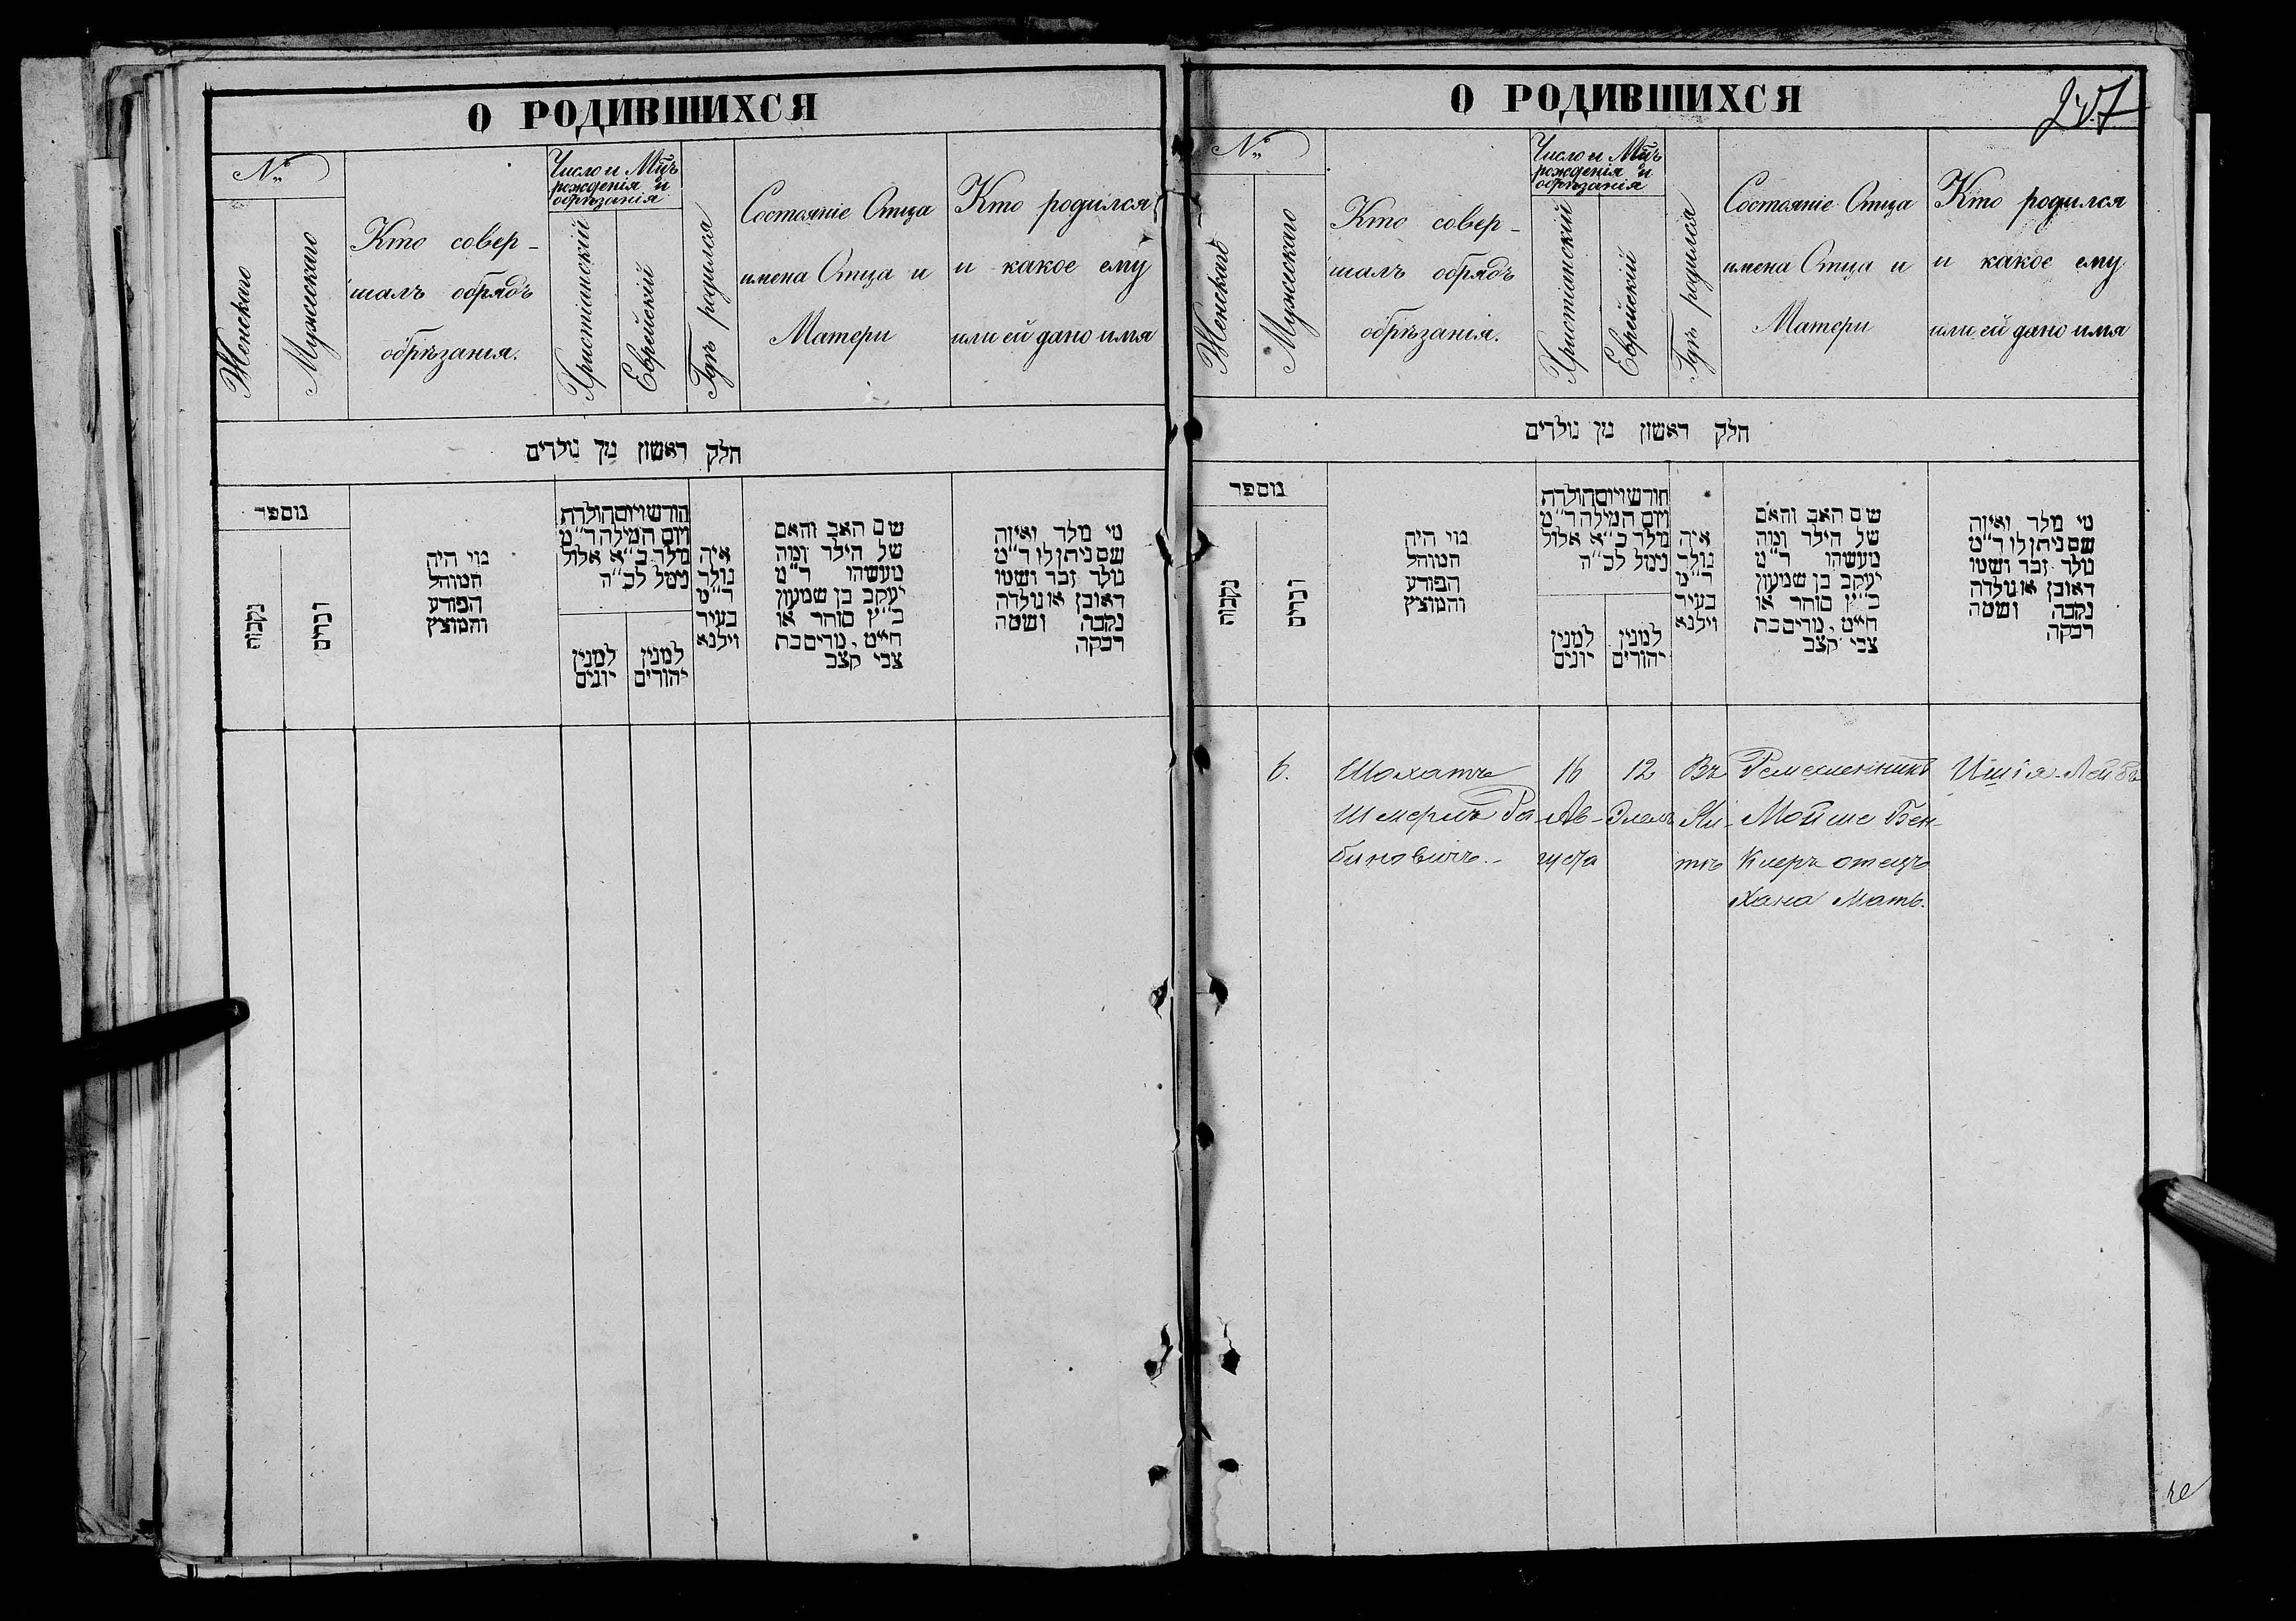 О РОДИВШИХСЯ
№
Женскаго
Мужескаго
Кто совер-
шалъ обрядъ
обрѣзанія.
Число и Мѣц.
рожденія и
обрѣзанія
Христіанскій
Еврейскій
Гдѣ родился
Состояніе Отца
имена Отца и
Матери
Кто родился
и какое ему
или ей дано имя
חלק ראשון מן נולדים
מספר
נקבות
זכרים
מי היה
המוהל
הפורע
והמוצץ
חודש ויום הולדת
ויום המילה ר״מ
מלד כ״א אלול
נימל לכ״ה
למנין
יונים
למנין
יהודים
איה
נולד
ר״מ
בעיר
וילנא
שם האב והאם
של הילד ומה
מעשהו ר״מ
יעקב בן שמעון
כ״ץ סוחר או
חייט, מרים בת
צבי קצב
מי מלד ואיזה
שם ניתן לו ר״מ
נולד זכר ושמו
ראובן או נולדה
נקבה ושמה
רבקה
О РОДИВШИХСЯ
№
Женскаго
Мужескаго
Кто совер-
шалъ обрядъ
обрѣзанія.
Число и Мѣц.
рожденія и
обрѣзанія
Христіанскій
Еврейскій
Гдѣ родился
Состояніе Отца
имена Отца и
Матери
Кто родился
и какое ему
или ей дано имя
חלק ראשון מן נולדים
מספר
נקבות
זכרים
מי היה
המוהל
הפורע
והמוצץ
חודש ויום הולדת
ויום המילה ר״מ
מלד כ״א אלול
נימל לכ״ה
למנין
יונים
למנין
יהודים
איה
נולד
ר״מ
בעיר
וילנא
שם האב והאם
של הילד ומה
מעשהו ר״מ
יעקב בן שמעון
כ״ץ סוחר או
חייט, מרים בת
צבי קצב
מי מלד ואיזה
שם ניתן לו ר״מ
נולד זכר ושמו
ראובן או נולדה
נקבה ושמה
רבקה
6.
Шохатъ
Шмерлъ Ра-
биновичъ.-
16
Ав-
густа
12
Элелъ
Въ
Яи-
тѣ
Ремесленникъ
Мойше Бен-
Клеръ отецъ
Хана Мать.
Ишія-Лейбъ